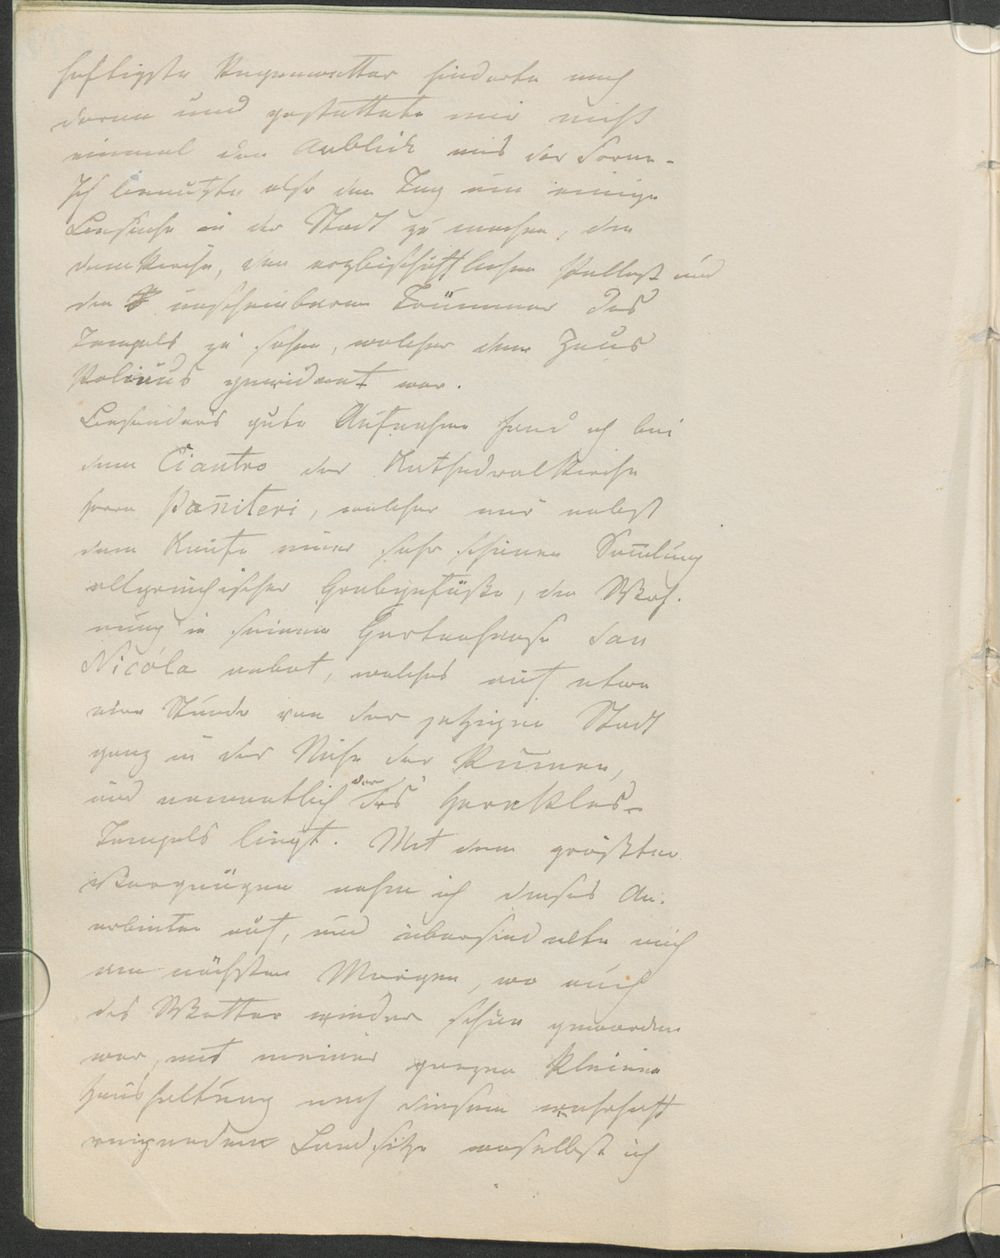 heftigste Regenwetter hinderte mich
daran und gestattete mir nicht
einmal den Anblick aus der Ferne.
Ich benutzte also den Tag um einige
Besuche in der Stadt zu machen, die
Domkirche, den erzbischöfflichen Pallast und
die unscheinbaren Trümmer des
Tempels zu sehen, welcher dem Zeus
Polieus gewidmet war.
Besonders gute Aufnahme fand ich bei
dem Ciantro der Kathedralkirche
Herrn Paniteri, welcher mir nebst
dem Kaufe einer sehr schönen Sammlung
altgriechischer Grabgefäße, die Woh-
nung in seinem Gartenhause San
Nicóla anbot, welches auf etwa
eine Stunde von der jetzigen Stadt
ganz in der Nähe der Ruinen,
und namentlich der des Herakles-
Tempels liegt. Mit dem größten
Vergnügen nahm ich dieses An-
erbieten auf, und übersiedelte mich
am nächsten Morgen, wo auch
das Wetter wieder schön geworden
war, mit meiner ganzen kleinen
Haushaltung nach diesem wahrhaft
reizenden Landsitze woselbst ich